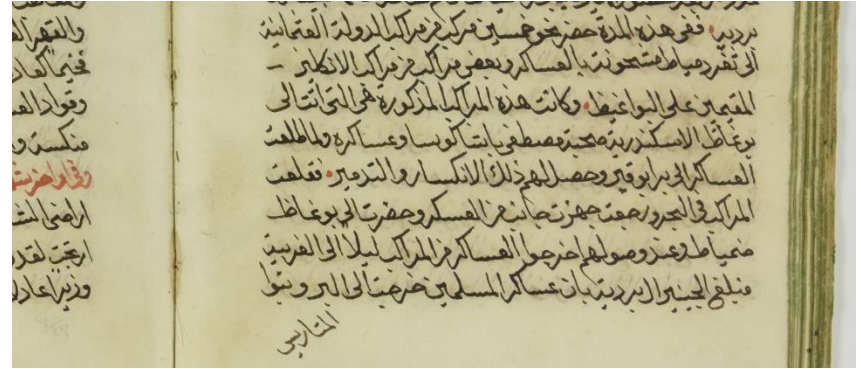 برديه ففي هذه المدة حضر نحو خمسين مركب من مراكب الدولة العتمانية
الى تغر دمياط مشحونة بالعساكر وبعض مراكب من مراكب الانكليز
المقيمين على البواغيظ وكانت هذه المراكب المذكورة هي التي اتت الى
بوغاظ الاسكندرية صحبة مصطفى باشا كوسا وعساكره ولما طلعت
العساكر الى بر ابوقير وحصل لهم ذلك الانكسار والتدمير فقلعت
المراكب في البحر ورجعت جهزت جانب من العسكر وحضرت الى بوغاظ
دمياط وعند وصولهم اخرجوا العساكر من المراكب ليلا الى الغربية
فبلغ الجينيرال برديه بان عساكر المسلمين خرجت الى البر وبنوا
المتاريس
والقهر
فخيما كعاد
وقواد الع
منكسة و
وفي اواخر شه
اراضي
ارتجت لقد
وزيرا عادل